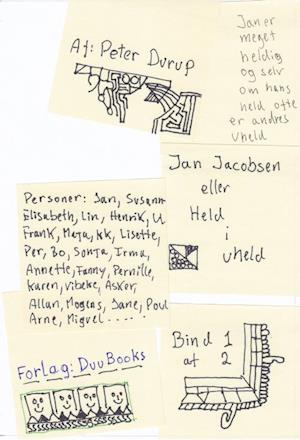 Af: Peter Durup
Jan er
meget
heldig
og selv
om hans
held ofte
er andres
uheld
Jan Jacobsen
eller
Held
i
uheld
Personer: Jan, Susanne
Elisabeth, Lin, Henrik, U
Frank, Maja, Kk, Lisette,
Per, Bo, Sonja, Irma,
Annette, Fanny, Pernille,
Karen, Vibeke, Asker,
Allan, Mogens, Jane, Poul
Arne, Miguel.....
Forlag: Duu Books
Bind 1
af 2